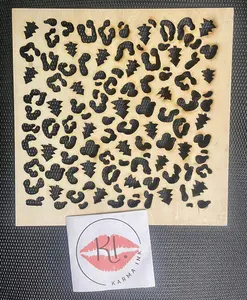 KI.
KARMA INK